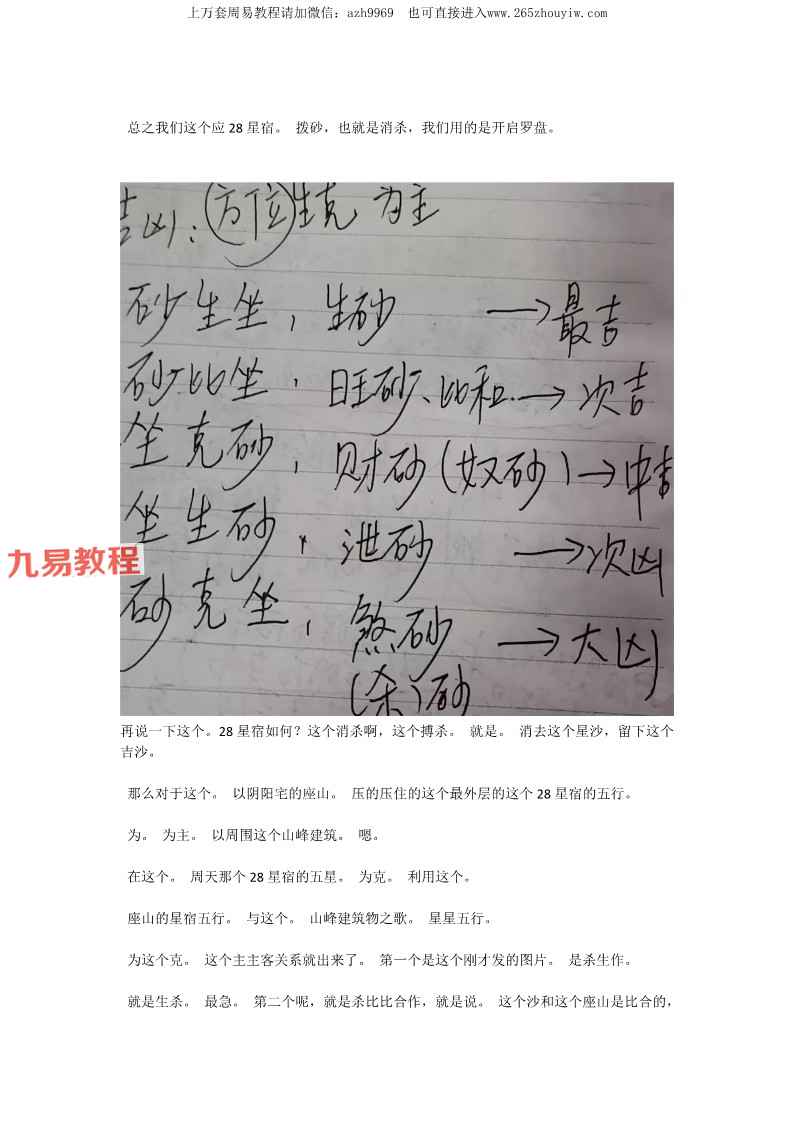 上万套周易教程请加微信：azh9969 也可直接进入www.265zhouyiw.com
总之我们这个应 28 星宿。 拨砂，也就是消杀，我们用的是开启罗盘。
吉凶：(方位)生克 为主
砂生坐，生砂 →最吉
砂比坐，旺砂、比和.→次吉
坐克砂，财砂(奴砂)→中吉
坐生砂，泄砂 →次凶
九易教程
砂克坐，煞砂 →大凶
(杀)砂
再说一下这个。28 星宿如何？这个消杀啊，这个搏杀。 就是。 消去这个星沙，留下这个
吉沙。
那么对于这个。 以阴阳宅的座山。 压的压住的这个最外层的这个 28 星宿的五行。
为。 为主。 以周围这个山峰建筑。 嗯。
在这个。 周天那个 28 星宿的五星。 为克。 利用这个。
座山的星宿五行。 与这个。 山峰建筑物之歌。 星星五行。
为这个克。 这个主主客关系就出来了。 第一个是这个刚才发的图片。 是杀生作。
就是生杀。 最急。 第二个呢，就是杀比比合作，就是说。 这个沙和这个座山是比合的，